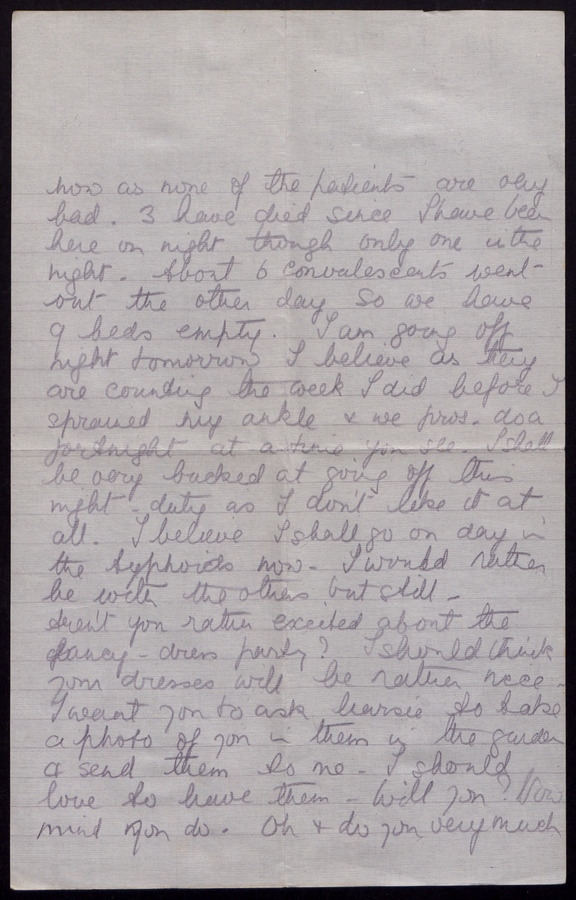 now as none of the patients are very
bad. 3 have died since I have been
here on night though only one in the
night. About 6 convalescents went
out the other day so we have
9 beds empty. I am going off
night tomorrow I believe as they
are counting the week I did before I
sprained my ankle & we pros. do a
fortnight at a time you see. I shall
be very bucked at going off this
night-duty as I don't like it at
all. I believe I shall go on day in
the typhoids now - I would rather
be with the others but still -
Aren't you rather excited about the
fancy-dress party? I should think
your dresses will be rather nice -
I want you to ask to take
a photo of you in them in the garden
& send them to me - I should
love to have them - Will you? Now
mind you do. Oh & do you very much